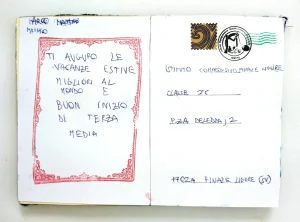 MARCO
TI AUGURO LE
VACANZE ESTIVE
MIGLIORI AL
MONDO E
BUON INIZIO
DI TERZA
MEDIA
ISTITUTO COMPRENSIVO FINALE LIGURE
CLASSE
P.ZZA DELEDDA, 2
17024 FINALE LIGURE (SV)